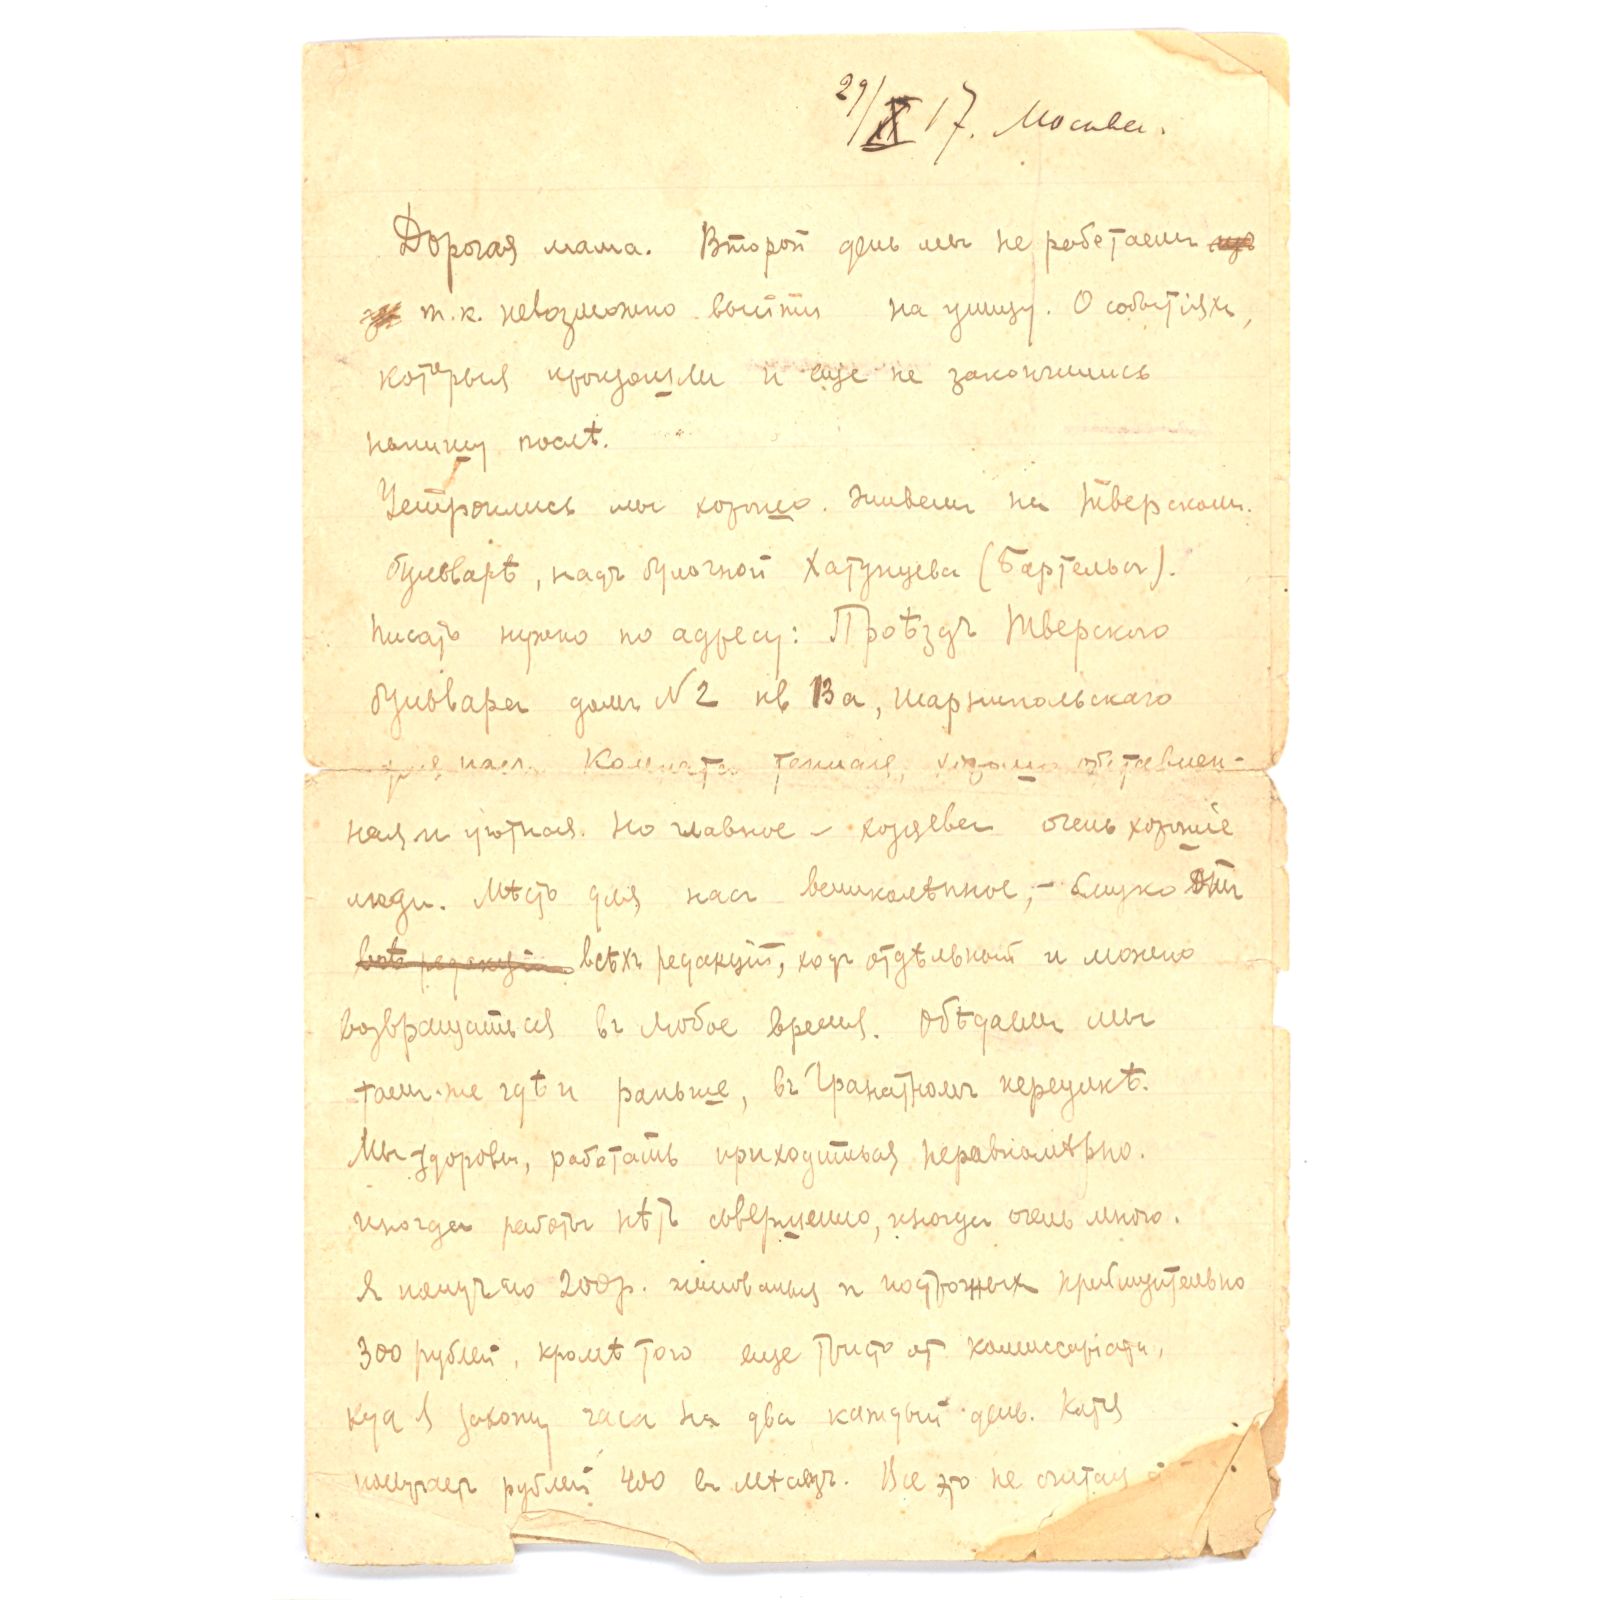 29/X 17. Москва.
Дорогая мама. Второй день мы не работаем
т.к. невозможно выйти на улицу. О событіяхъ,
которыя произошли и еще не закончились
напишу послѣ.
Устроились мы хорошо. Живемъ на Тверскомъ
бульварѣ, надъ булочной Хатунцева (Бартельса).
Писать нужно по адресу: Проѣздъ Тверского
бульвара домъ № 2 кв 13а, Шарнипольскаго
для насъ. Комната теплая, хорошо обставлен-
ная и уютная. Но главное – хозяева очень хорошіе
люди. Мѣсто для насъ великолѣпное, – близко отъ
всѣ редакцій всѣхъ редакцій, ходъ отдѣльный и можно
возвращаться въ любое время. Обѣдаемъ мы
тамъ-же гдѣ и раньше, въ Гранатномъ переулкѣ.
Мы здоровы, работать приходится неравномѣрно.
Иногда работы нѣтъ совершенно, иногда очень много.
Я получаю 200 р. жалованья и построчныхъ приблизительно
300 рублей, кромѣ того еще триста от комиссаріата,
куда я захожу часа на два каждый день. Катя
получаетъ рублей 400 въ мѣсяцъ. Все это не считая